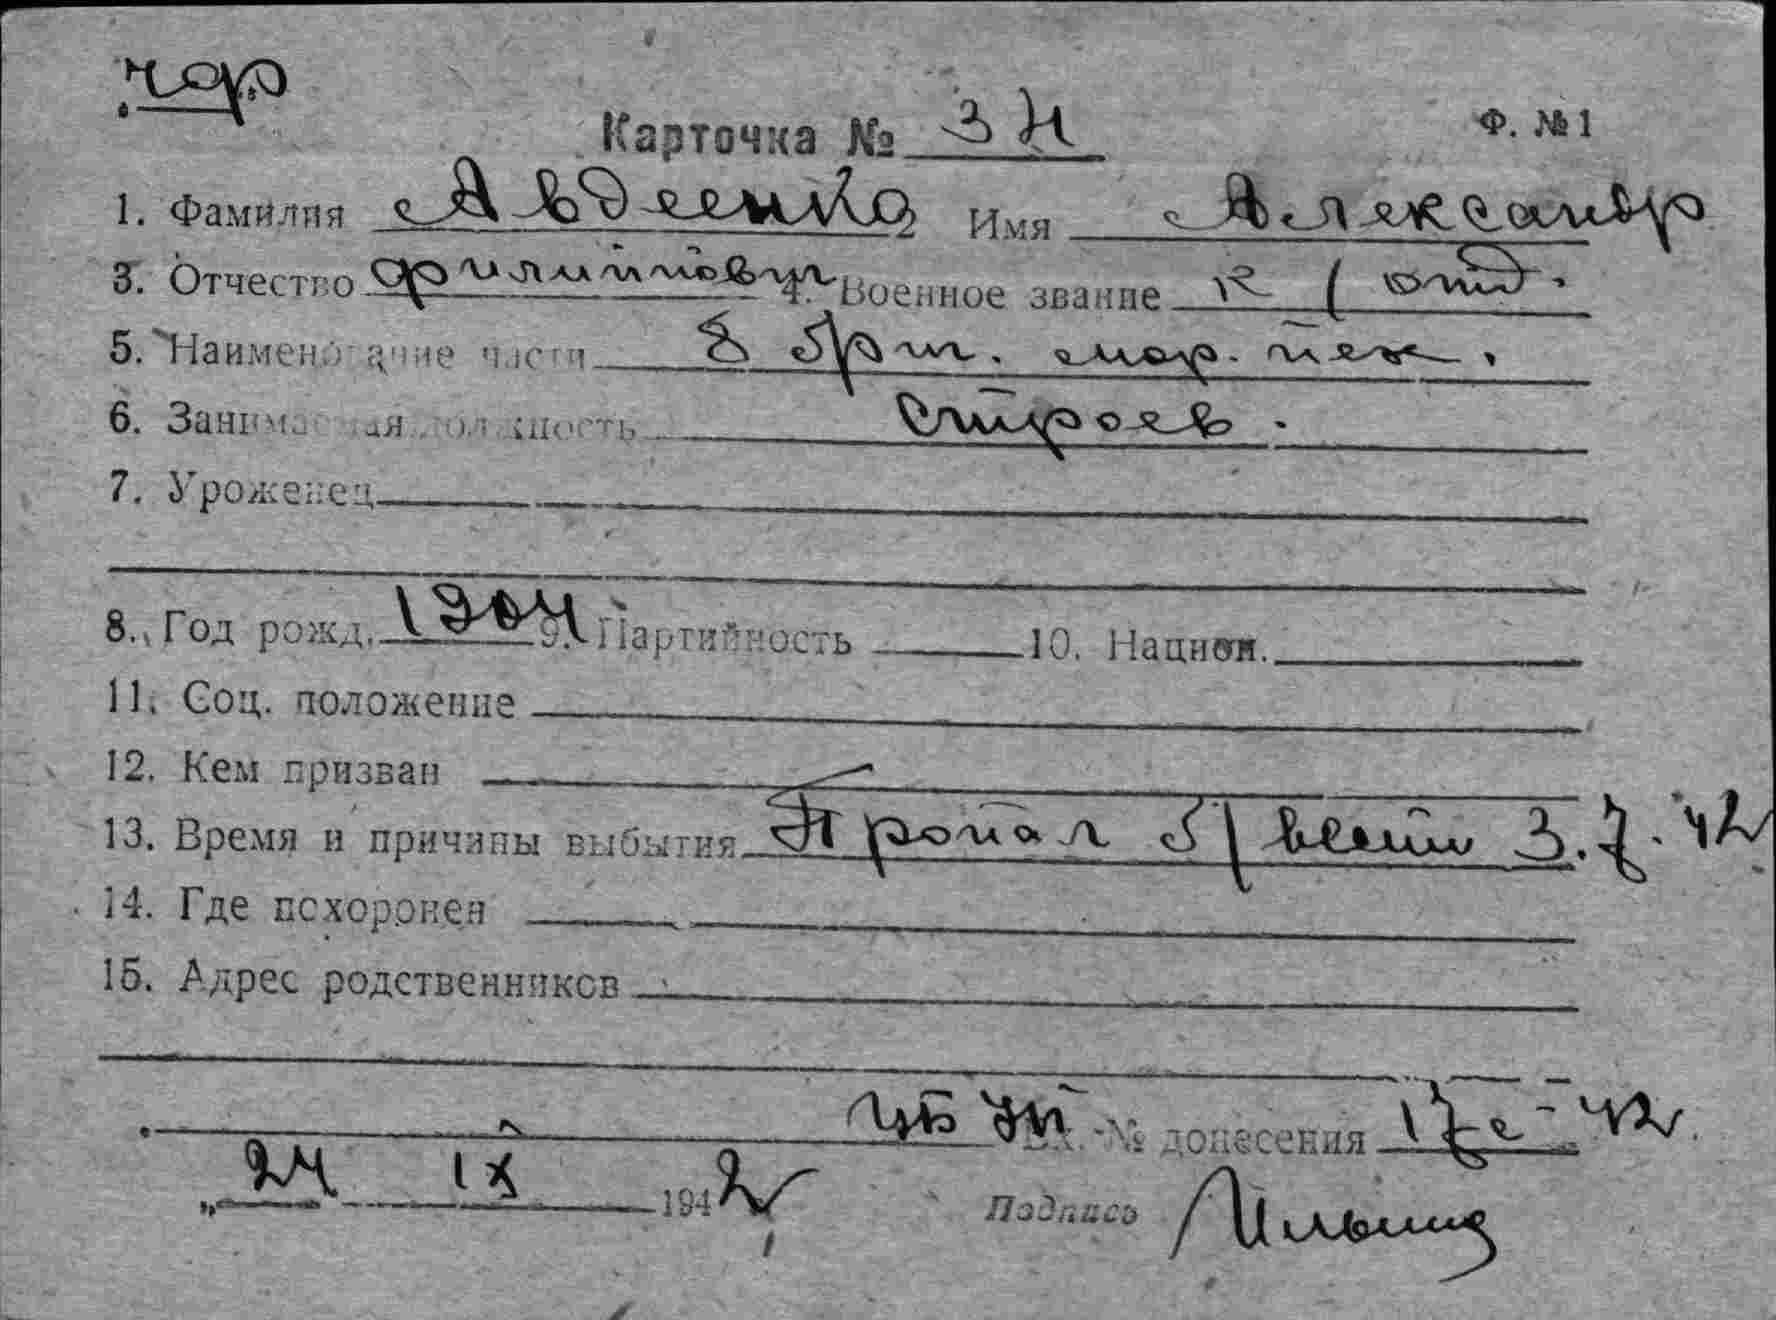 чф
Карточка № 34 Ф. № 1
1. Фамилия Авдеенко 2 Имя Александр
3. Отчество Филиппович 4. Военное звание к/отд.
5. Наименование части 8 бриг. мор. пех.
6. Занимаемая должность строев.
7. Уроженец
8. Год рожд. 1904 9. Партийность 10. Национ.
11. Соц. положение
12. Кем призван
13. Время и причины выбытия Пропал б/вести 3.7.42
14. Где похоронен
15. Адрес родственников
Вх. № донесения 17с-42
„24 IX 1942
Подпись Ильина